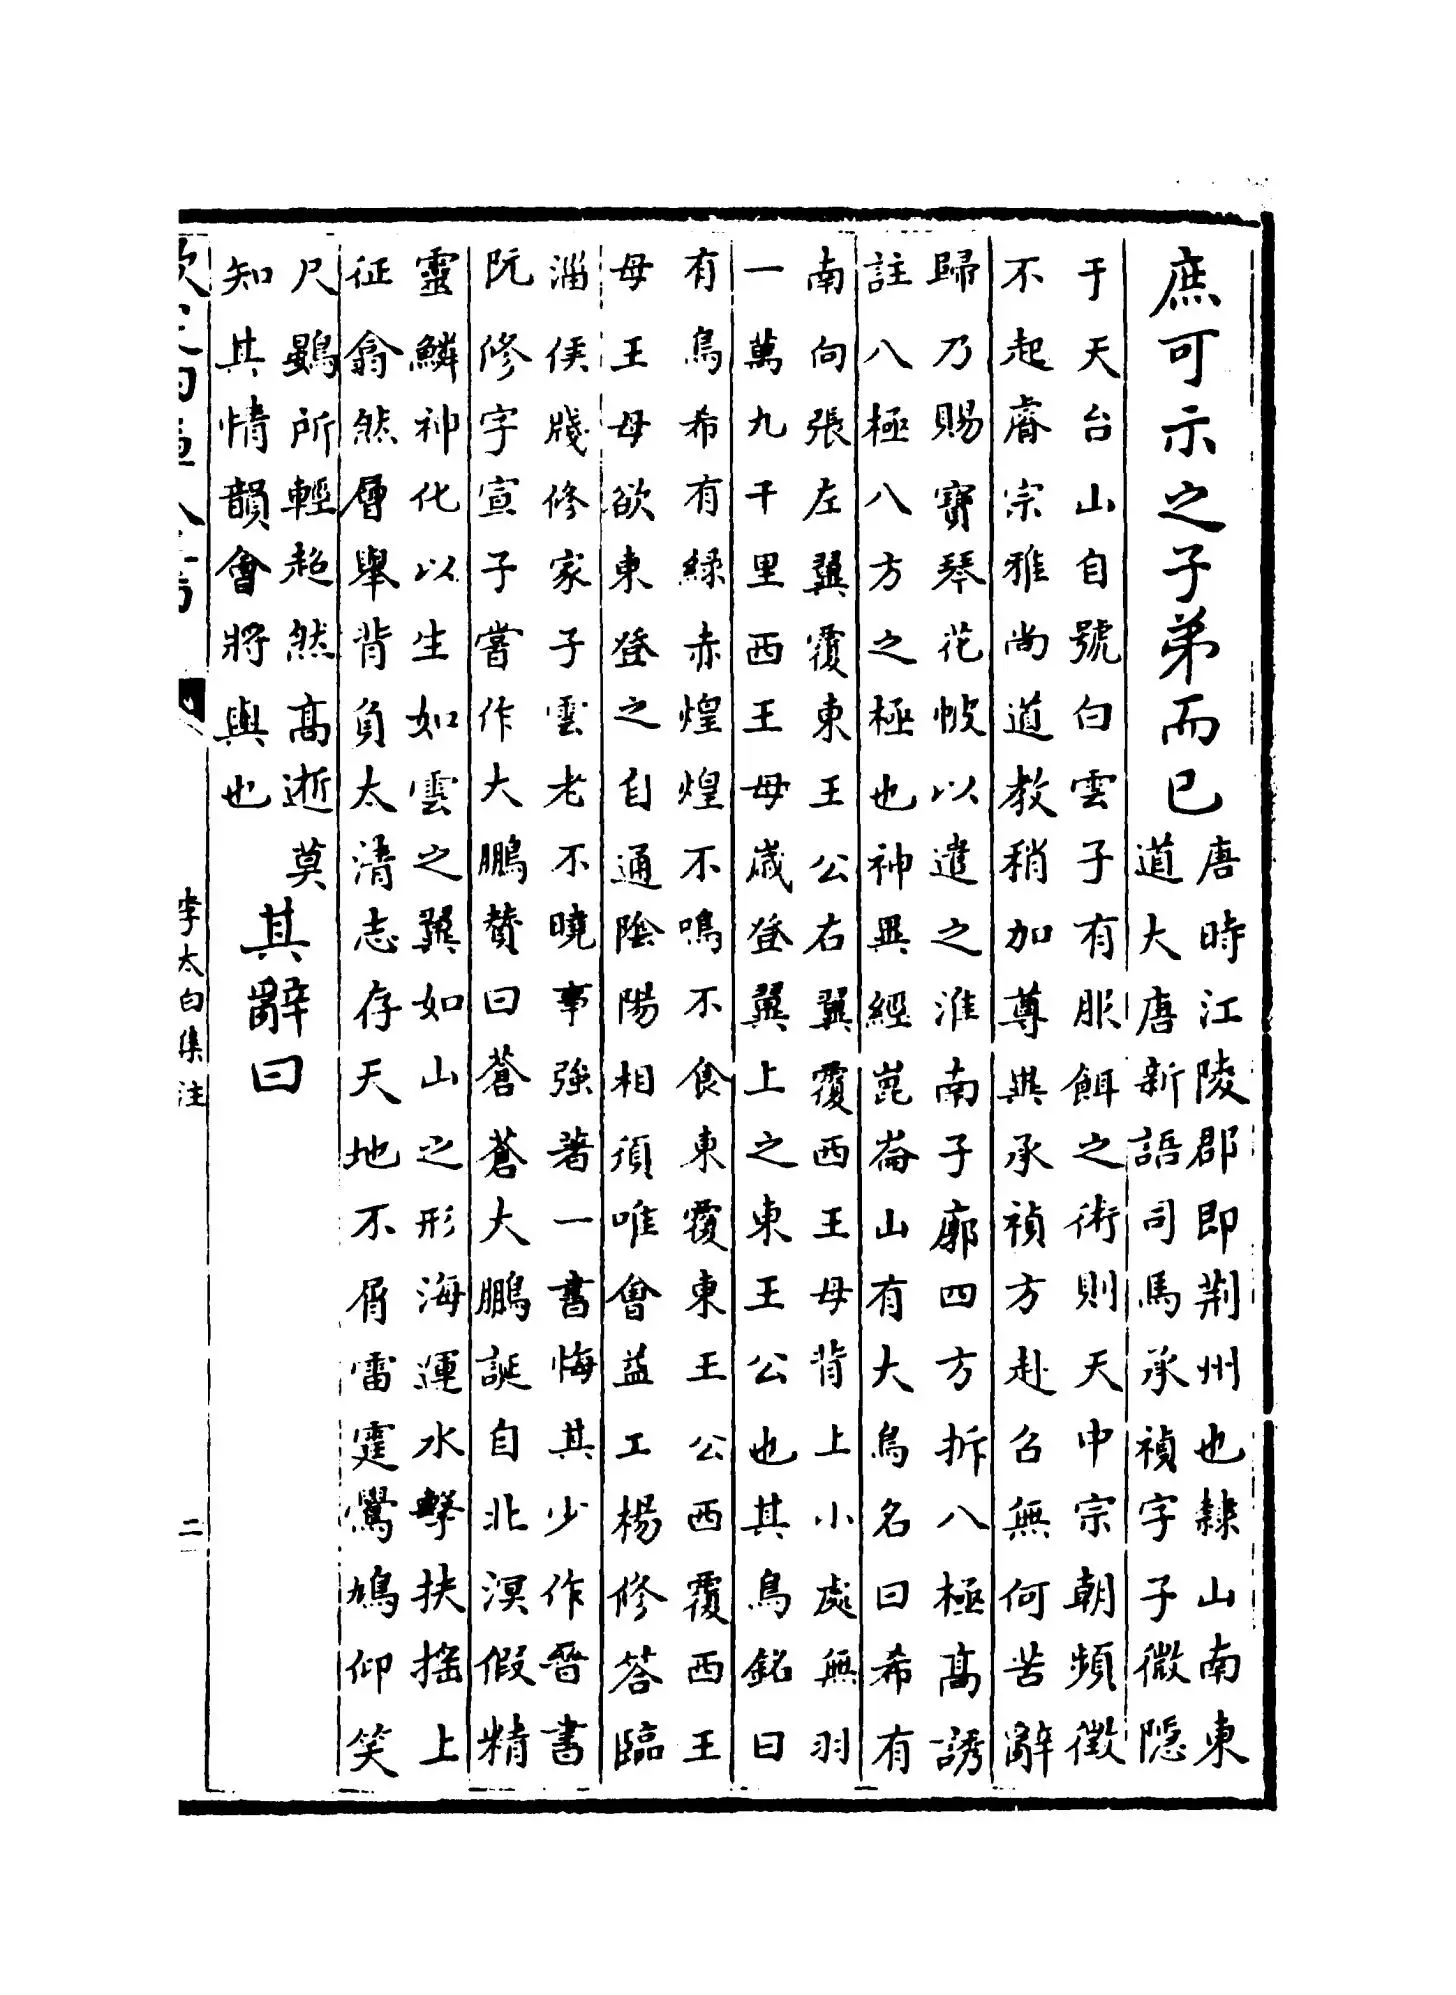 庶可示之子弟而已
唐時江陵郡即荆州也隸山南東
道大唐新語司馬承禎字子微隱
于天台山自號白雲子有服餌之術則天中宗朝頻徵
不起睿宗雅尚道教稍加尊異承禎方赴召無何苦辭
歸乃賜寶琴花帔以遣之淮南子廓四方拆八極高誘
註八極八方之極也神異經崑崙山有大鳥名曰希有
南向張左翼覆東王公右翼覆西王母背上小處無羽
一萬九千里西王母歲登翼上之東王公也其鳥銘曰
有鳥希有緑赤煌煌不鳴不食東覆東王公西覆西王
母王母欲東登之自通陰陽相須唯會益工楊修答臨
淄侯牋修家子雲老不曉事强著一書悔其少作晉書
阮修字宣子嘗作大鵬贊曰蒼蒼大鵬誕自北溟假精
靈鱗神化以生如雲之翼如山之形海運水擊扶揺上
征翕然層舉背負太清志存天地不屑雷霆鷽鳩仰笑
尺鷃所輕超然高逝莫
知其情韻會將與也
其辭曰
李太白集注
二